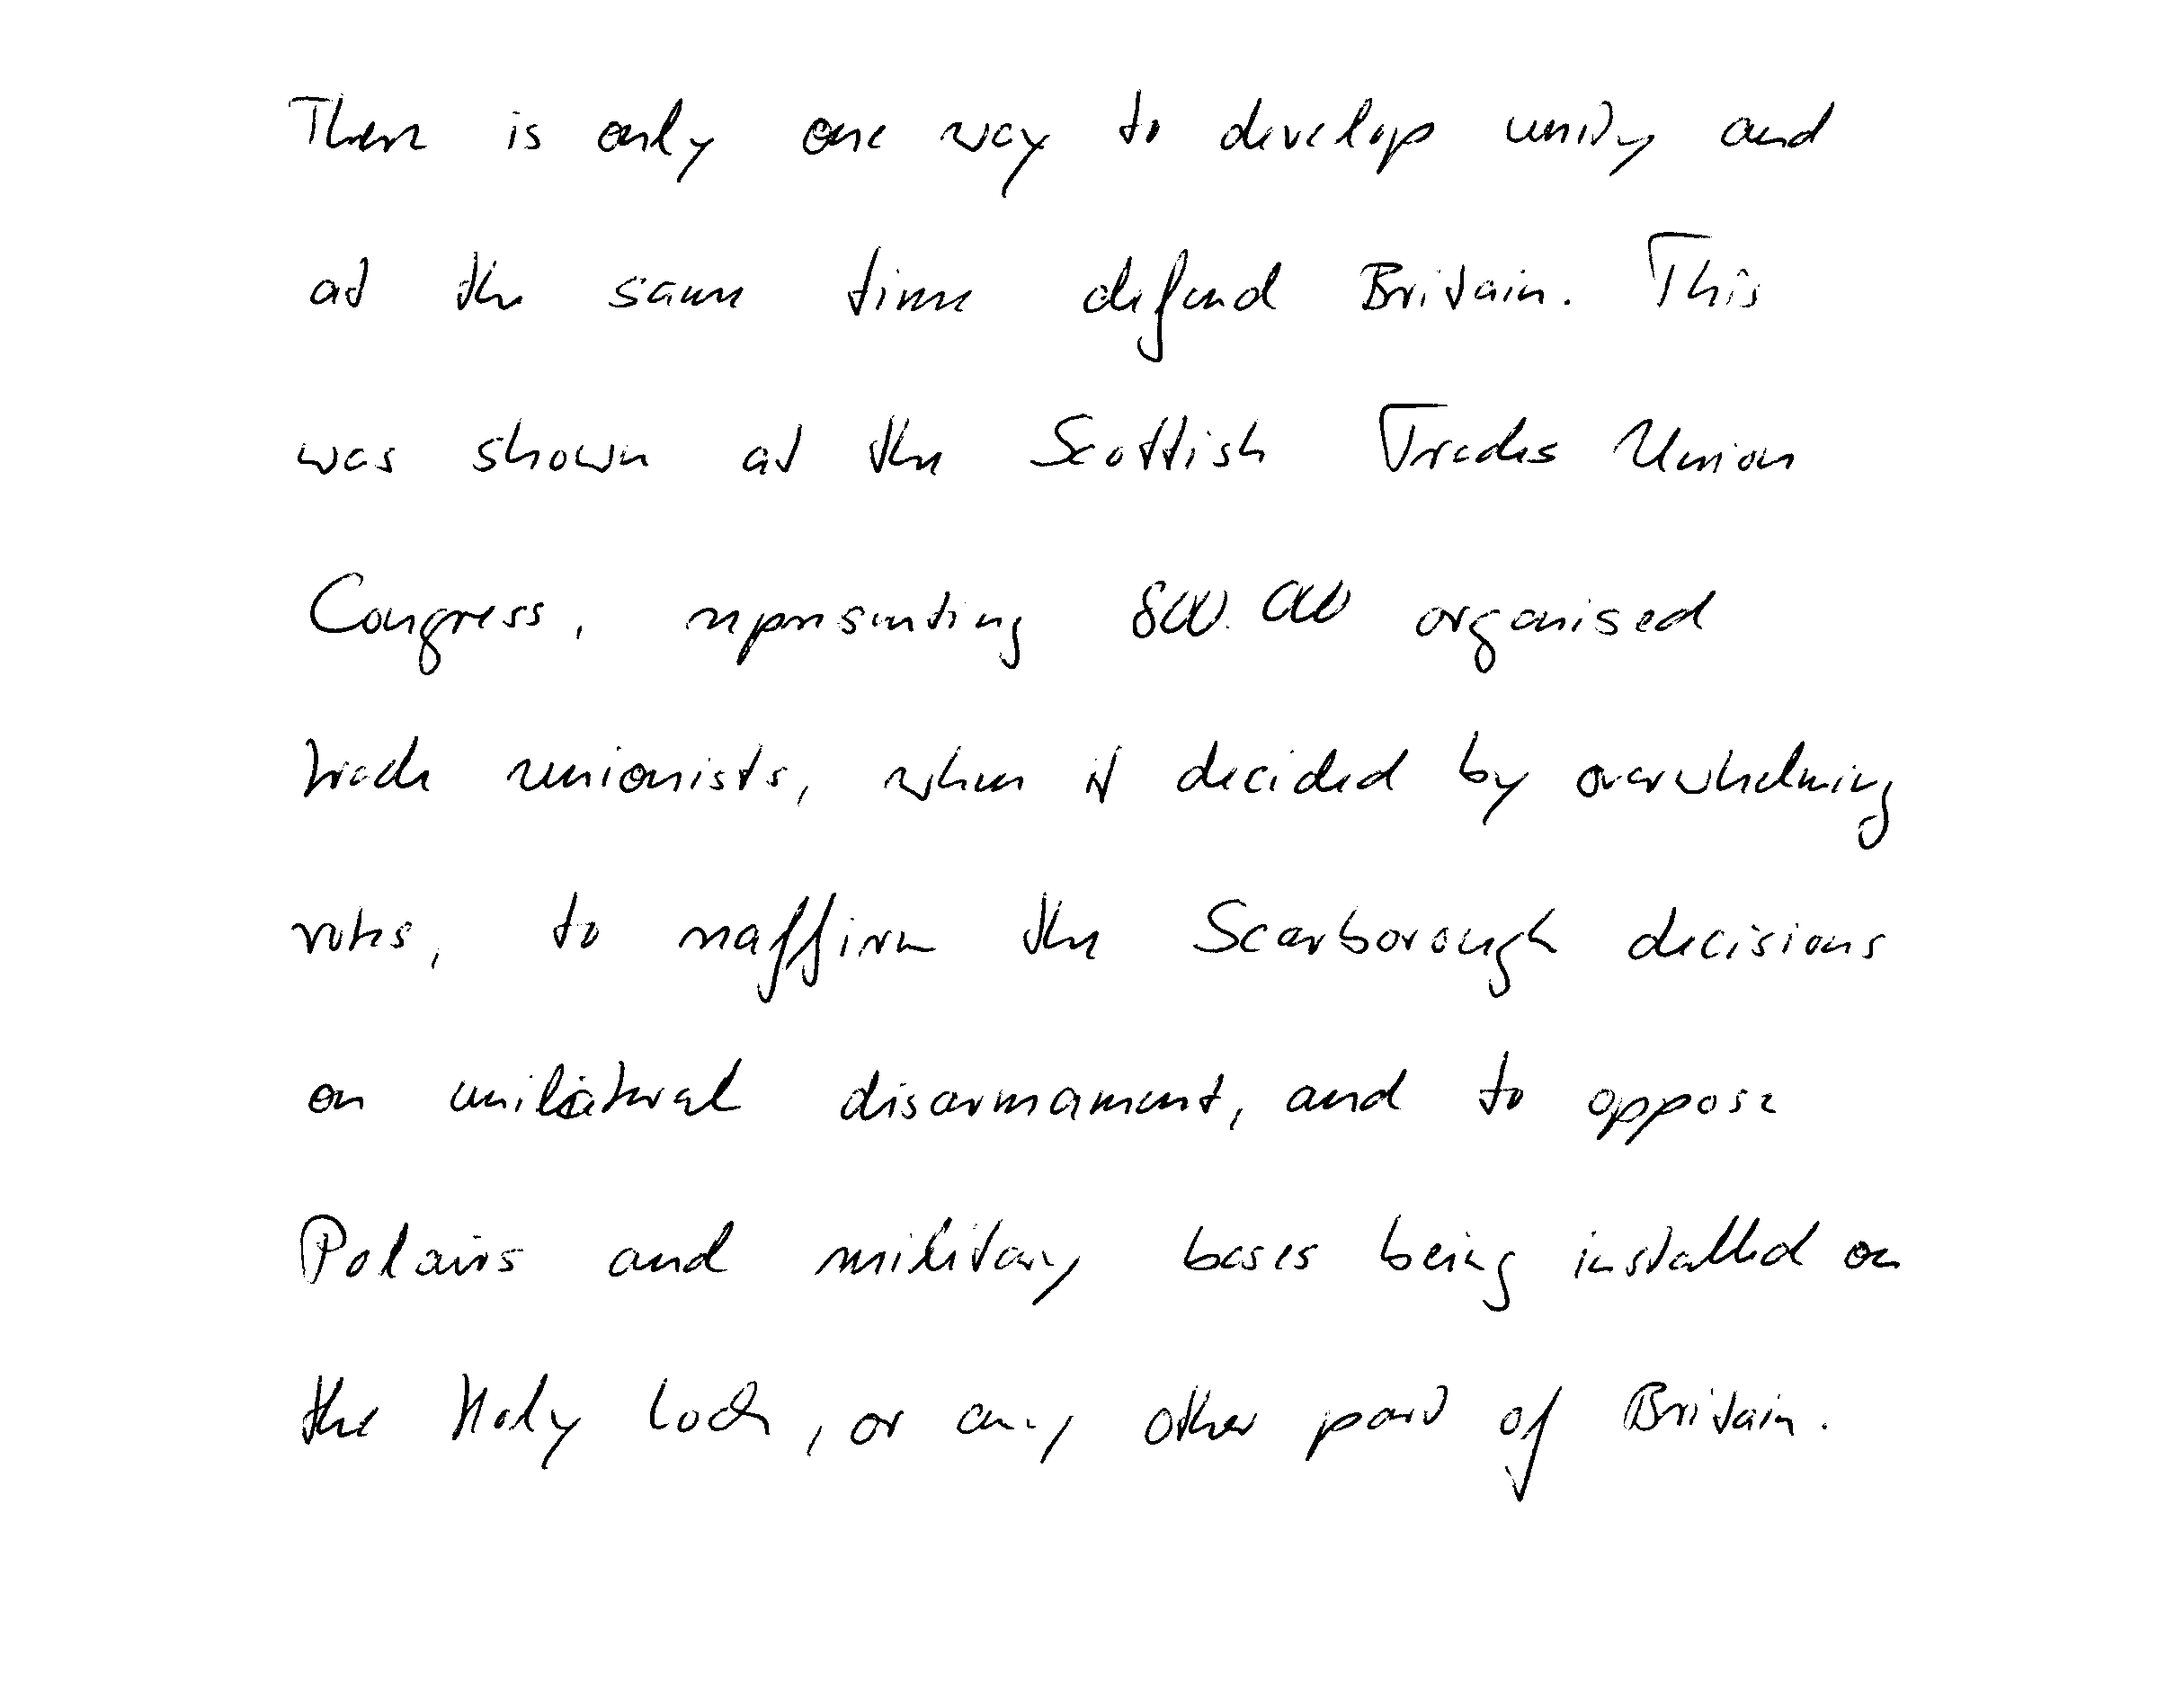 There is only one way to develop unity and
at the same time defend Britain. This
was shown at the Scottish Trades Union
Congress, representing 800.000 organised
trade unionists, when it decided by overwhelming
votes, to reaffirm the Scarborough decisions
on unilateral disarmament, and to oppose
Polairs and military bases being installed on
the Holy Loch, or any other part of Britain.